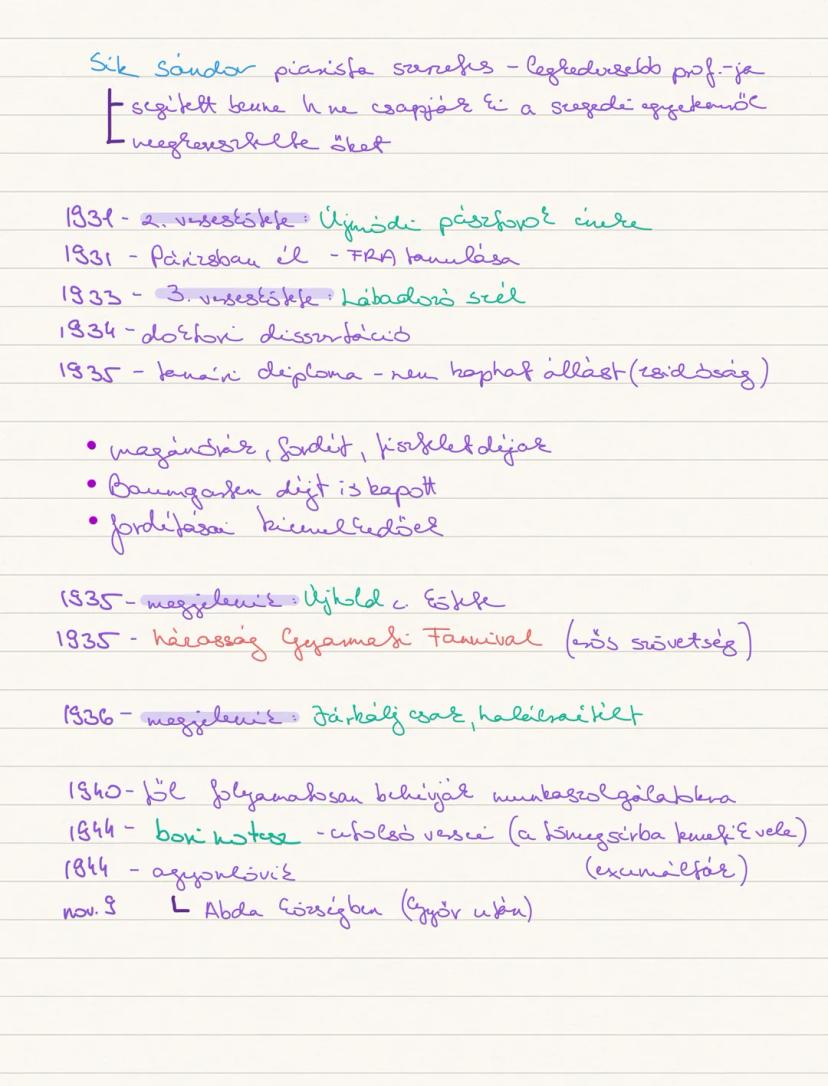 Sík Sándor piarista szerzetes - legkedvesebb prof.-ja
segített benne h ne csapják ki a szegedi egyetemről
megkeresztelte őket
1931 - 2. verseskötete: Újmódi pásztorok éneke
1931 - Párizsban él - FRA tanulása
1933 - 3. verseskötete: Lábadozó szél
1934 - doktori disszertáció
1935 - tanári diploma - nem kaphat állást (zsidóság)
• magánórák, fordít, tiszteletdíjak
• Baumgarten díjt is kapott
• fordításai kiemelkedőek
1935 - megjelenik: Újhold c. kötete
1935 - házasság Gyarmati Fannival (erős szövetség)
1936 - megjelenik: Járkálj csak, halálraítélt
1940-től folyamatosan behívják munkaszolgálatokra
1944 - bori notesz - utolsó versei (a tömegsírba temették vele)
1944 - agyonlövik (exumálták)
nov. 9 Abda községben (Győr után)